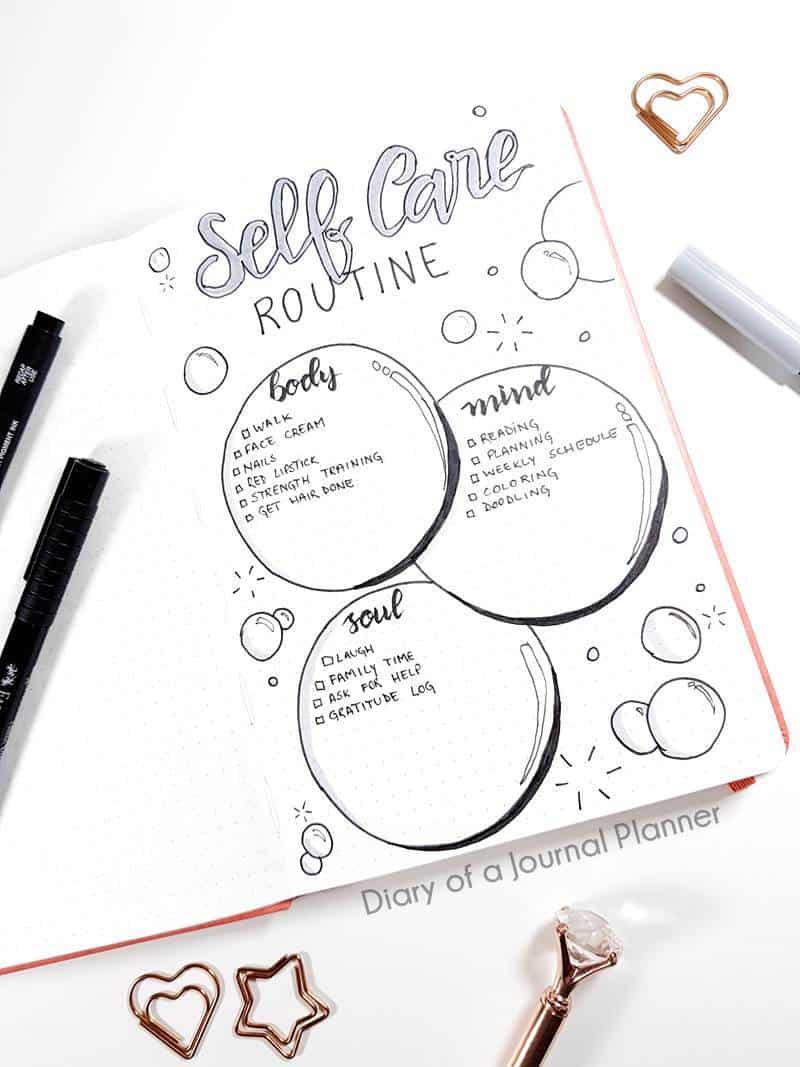 Self Care
ROUTINE
body
WALK
FACE CREAM
NAILS
RED LIPSTICK
STRENGTH TRAINING
GET HAIR DONE
mind
READING
PLANNING
WEEKLY SCHEDULE
COLORING
DOODLING
soul
LAUGH
FAMILY TIME
ASK FOR HELP
GRATITUDE LOG
RECAP
AFTER
USE
PIGMENT INK
Diary of a Journal Planner